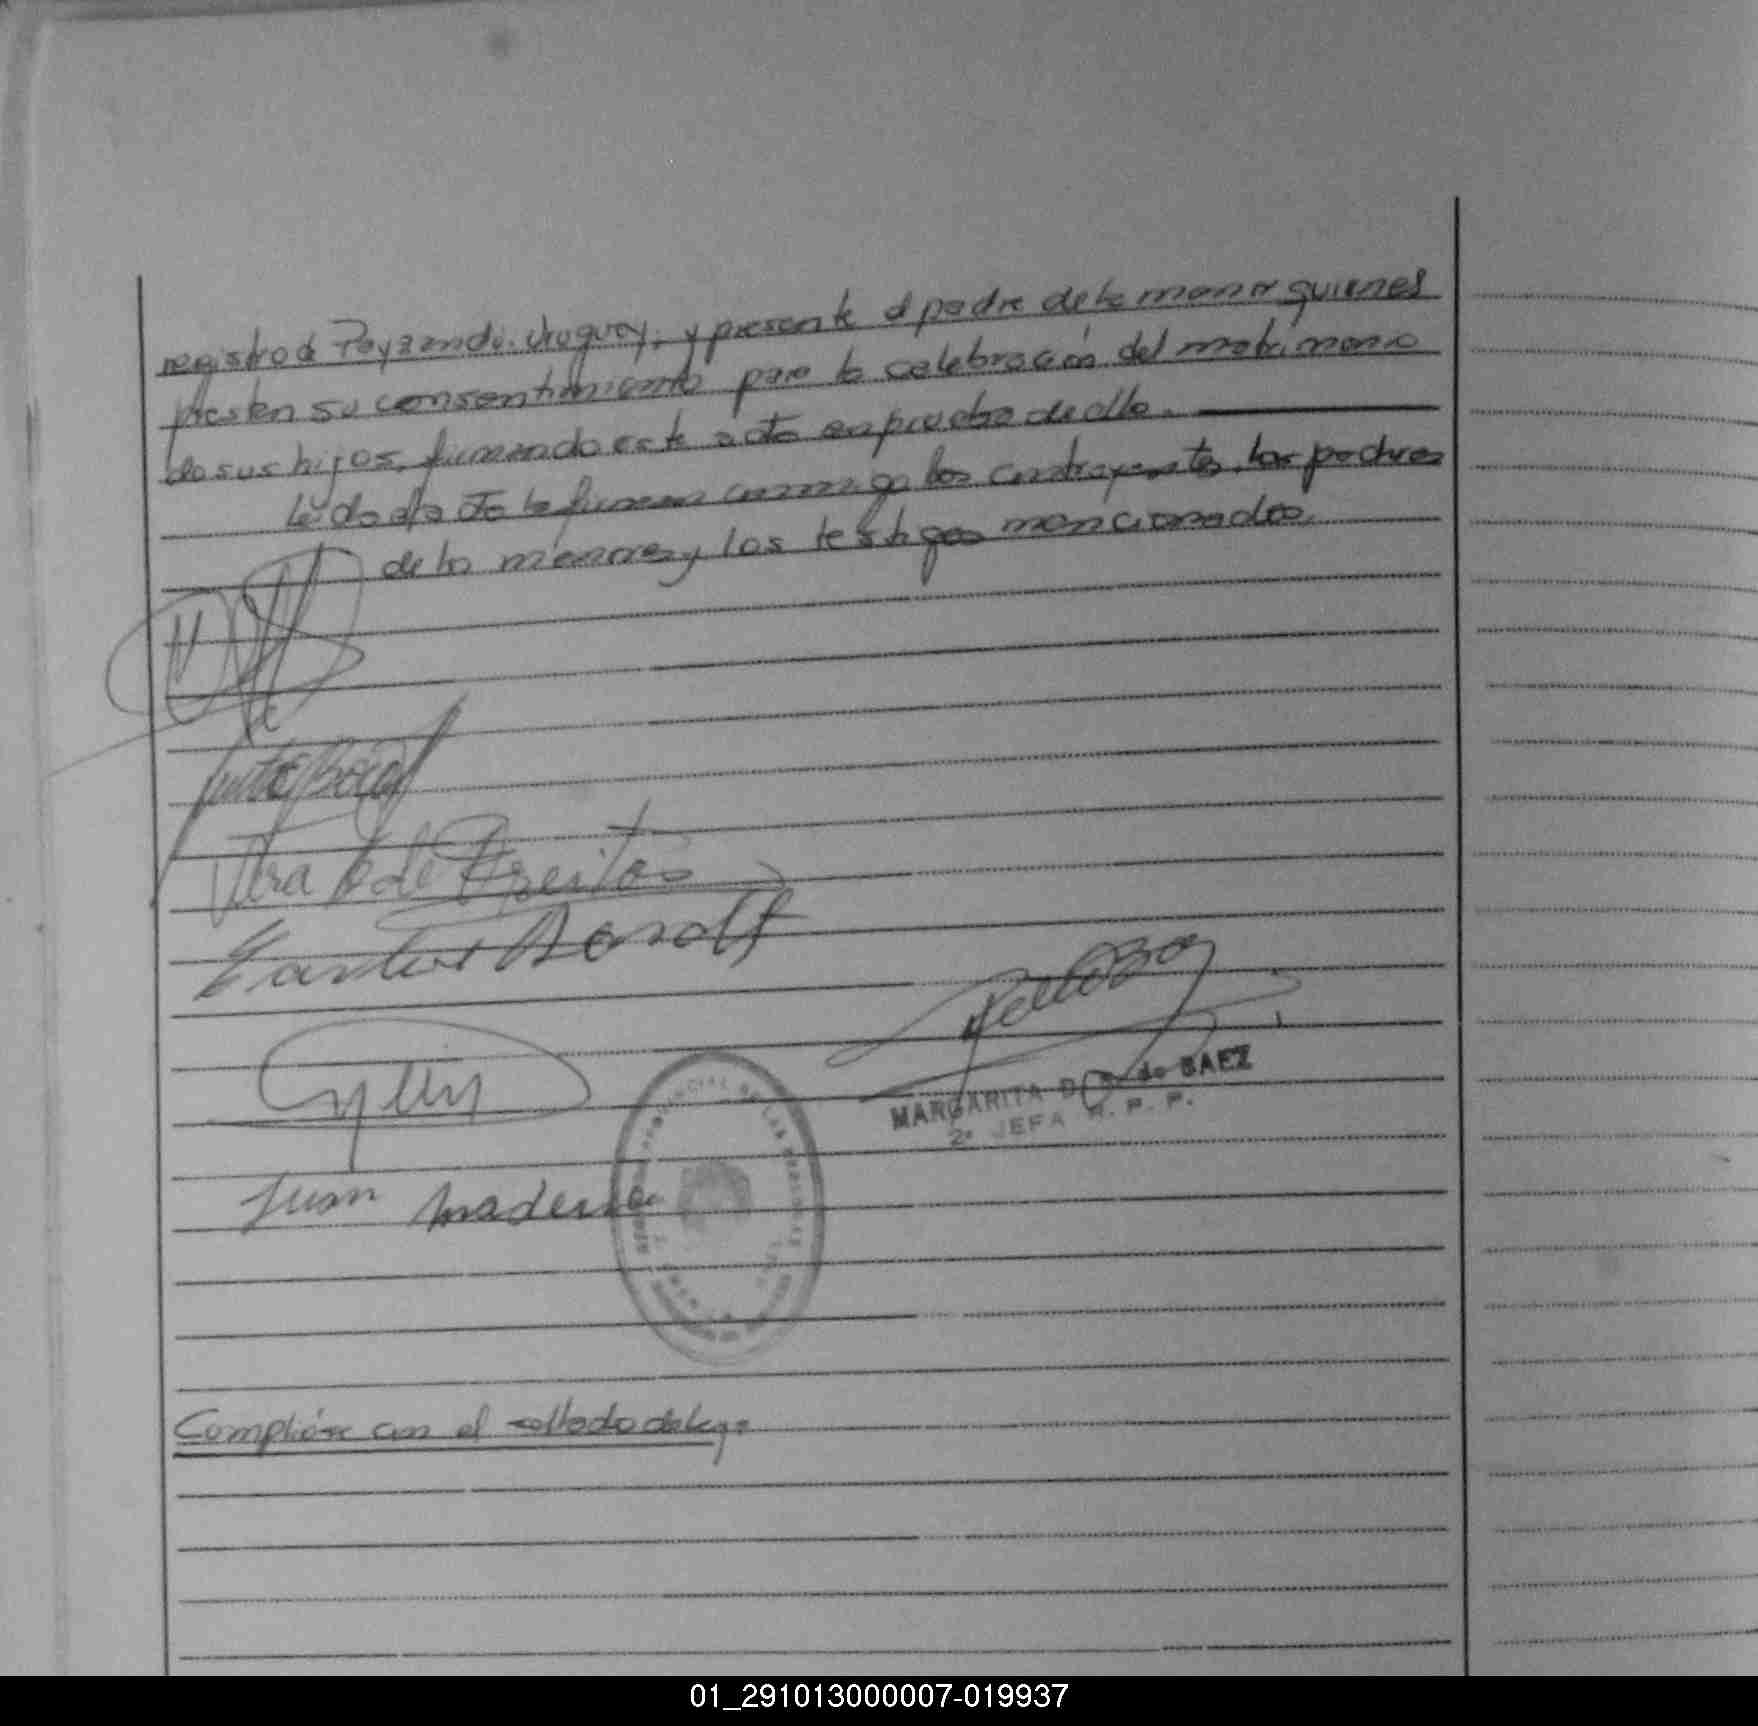 registro de Paysandú. Uruguay, y presente el padre de la menor quienes
prestan su consentimiento para la celebración del matrimonio
de sus hijos, firmando este acto en prueba de ello.
Leída el acta la firman conmigo los contrayentes, los padres
de los menores y los testigos mencionados.
de Freitas
Carlos
MARGARITA de BAEZ
2º JEFA R. P. P.
Juan Madera
Cumplióse con el sellado de ley.
01_291013000007-019937